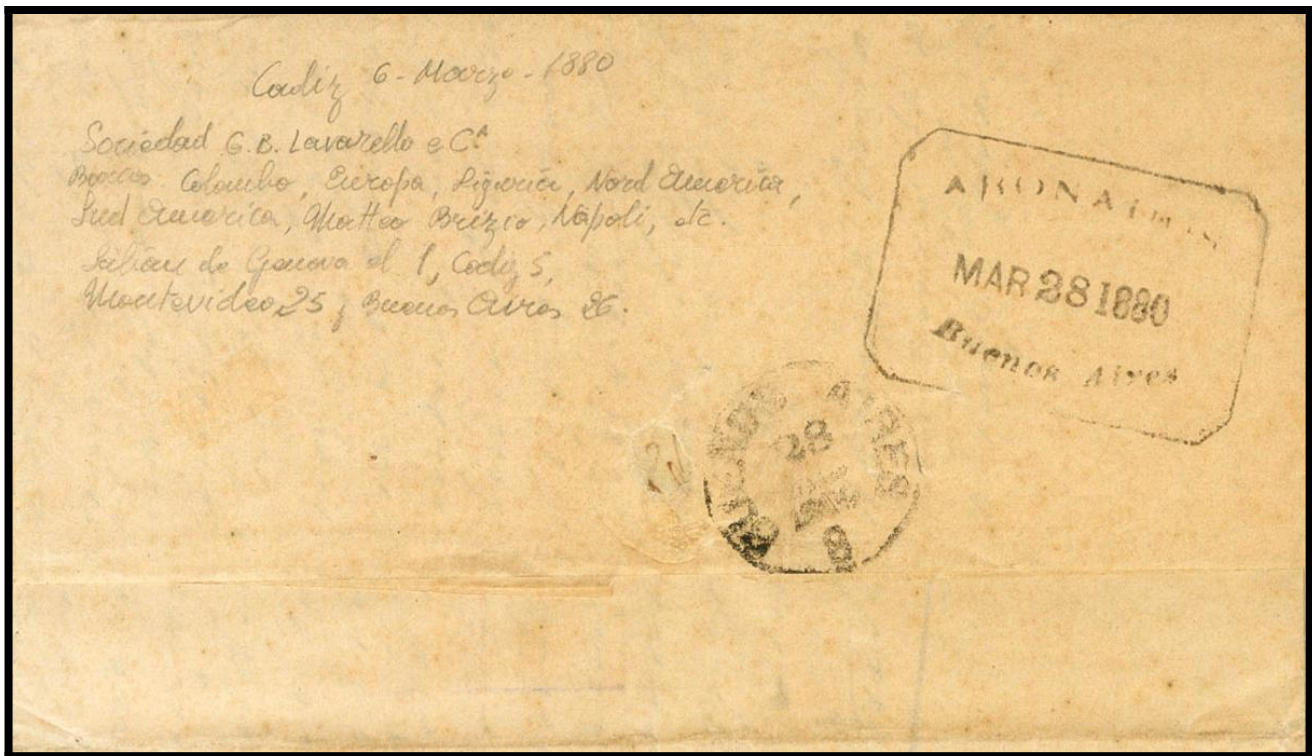 Cadiz 6-Marzo-1880
Sociedad G.B. Lavarello e Cª
Barcos Colombo, Europa, Liguria, Nord America,
Sud America, Matteo Bruzzo, Napoli, etc.
Salían de Genova el 1, Cadiz 5,
Montevideo 25, Buenos Aires 26.
MAR 28 1880
Buenos Aires
BUENOS AIRES
28